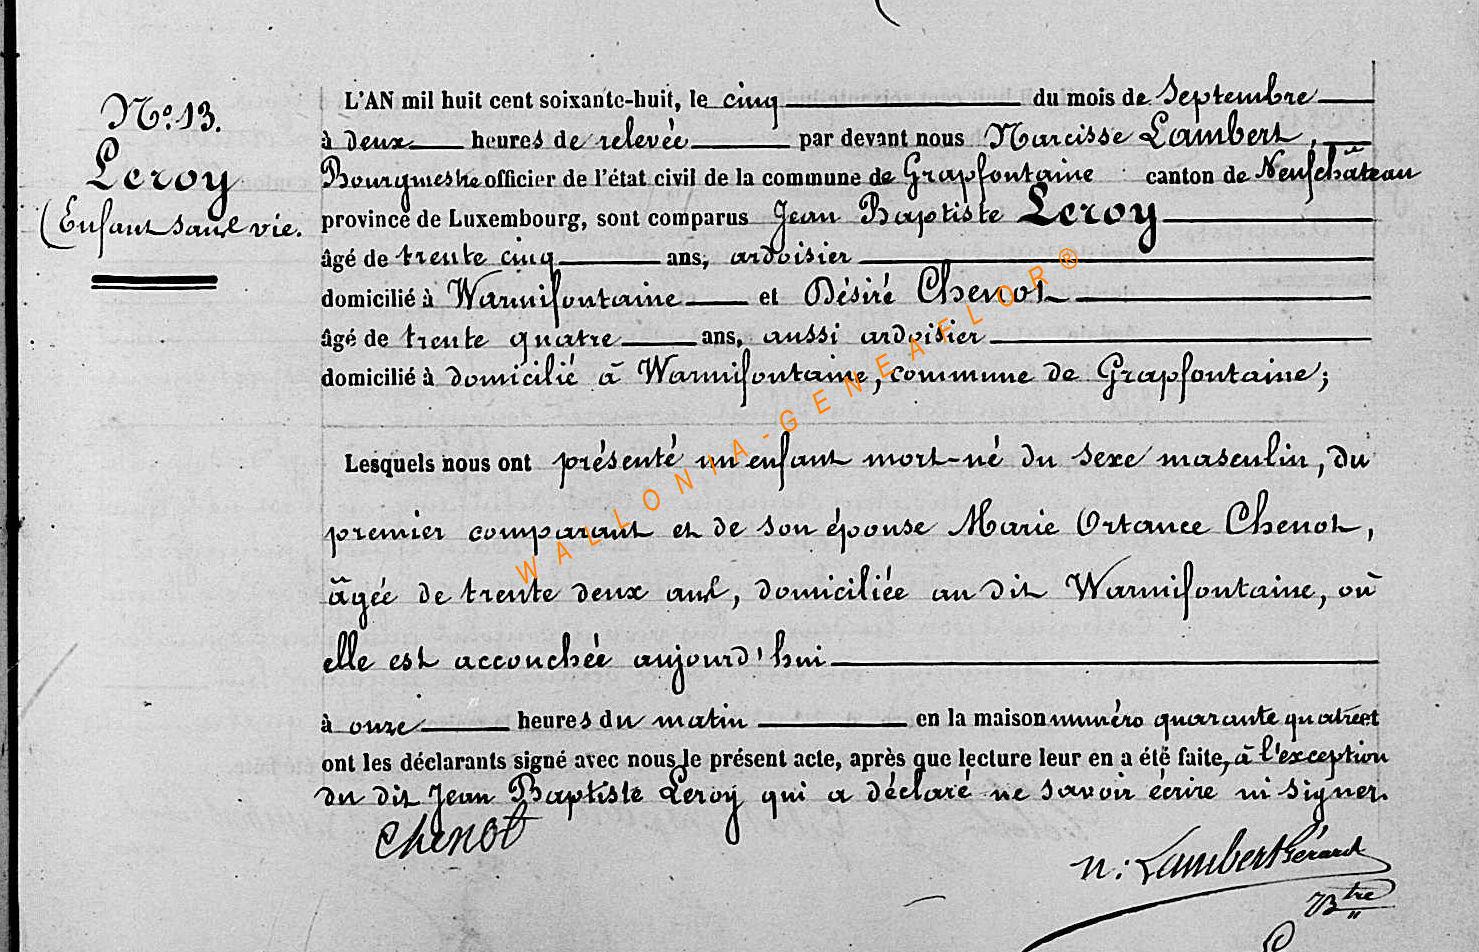 N.o 13.
Leroy
(Enfant sans vie.
L'AN mil huit cent soixante-huit, le cinq du mois de Septembre
à deux heures de relevée par devant nous Narcisse Lambert,
Bourgmestre officier de l'état civil de la commune de Grapfontaine canton de Neufchâteau
province de Luxembourg, sont comparus Jean Baptiste Leroy
âgé de trente cinq ans, ardoisier
domicilié à Warmifontaine et Désiré Chenot
âgé de trente quatre ans, aussi ardoisier
domicilié à domicilié à Warmifontaine, commune de Grapfontaine;
Lesquels nous ont présenté un enfant mort-né du sexe masculin, du
premier comparant et de son épouse Marie Ortance Chenot,
âgée de trente deux ans, domiciliée au dit Warmifontaine, où
elle est accouchée aujourd'hui
à onze heures du matin en la maison numéro quarante quatre et
ont les déclarants signé avec nous le présent acte, après que lecture leur en a été faite, à l'exception
du dit Jean Baptiste Leroy qui a déclaré ne savoir écrire ni signer.
Chenot
N: Lambert Gérard
Btre
WALLONIA-GENEAFLOR®